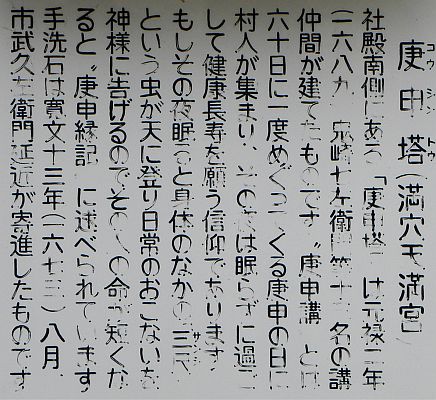 庚申塔(満穴天満宮)
コウシントウ
社殿南側にある「庚申塔」は元禄二年
(一六八九 宛崎七左衛門等十 名の講
仲間が建てたものです。"庚申講"とは
六十日に一度めぐってくる庚申の日に
村人が集まり、その夜は眠らずに過ご
して健康長寿を願う信仰であります。
もしその夜眠ると身体のなかの三尸
サンシ
という虫が天に登り日常のおこないを
神様に告げるのでその人の命が短くな
ると"庚申縁記"に述べられています。
手洗石は寛文十三年(一六七三)八月
市武久左衛門延近が寄進したものです